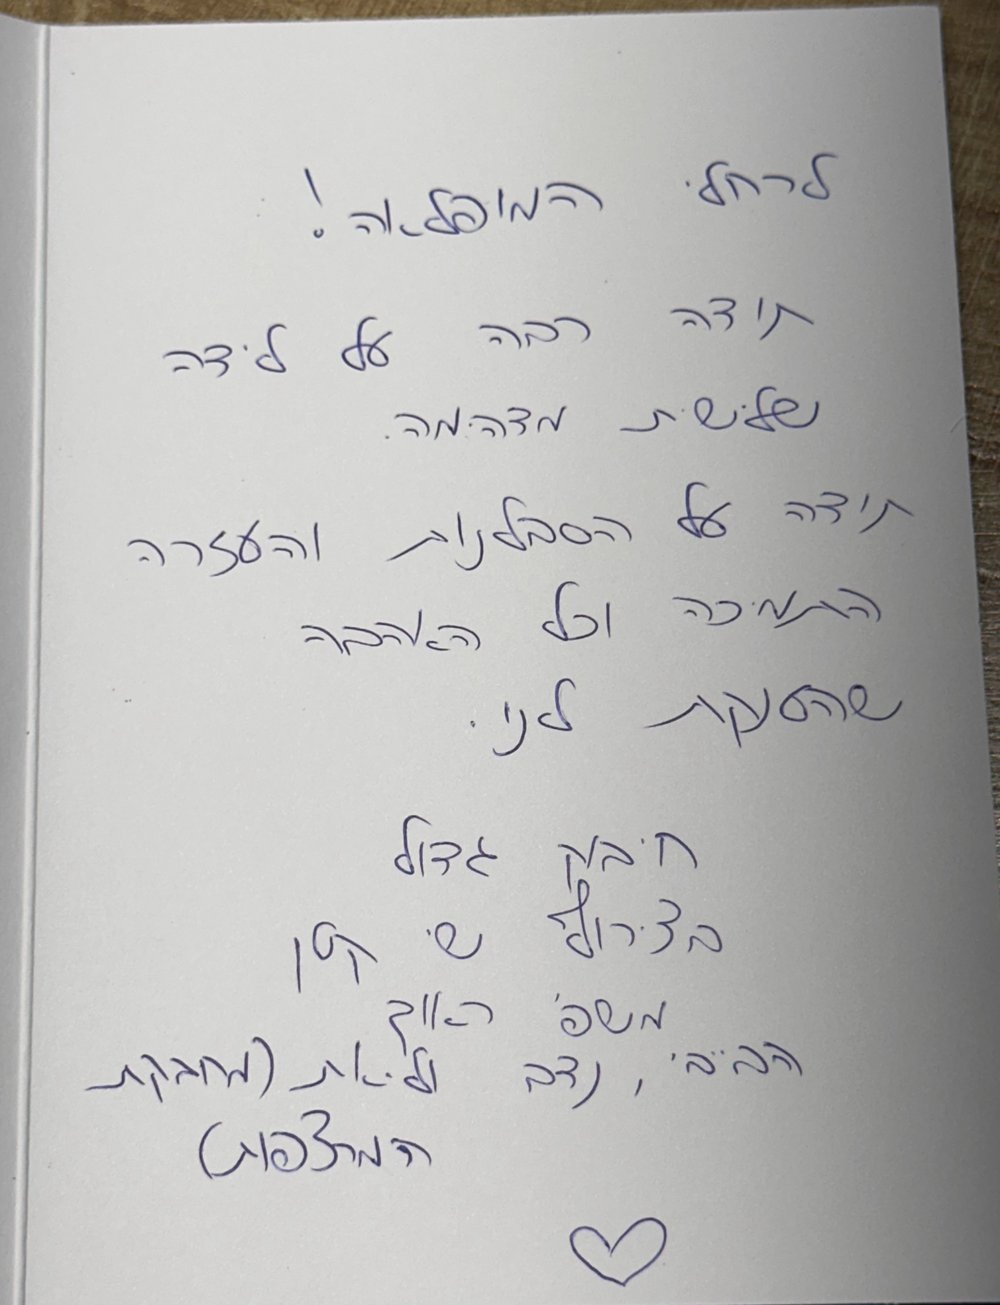 לרחלי המופלאה!
תודה רבה על לידה
שלישית מדהימה.
תודה על הסבלנות והעזרה
התמיכה וכל האהבה
שהענקת לנו.
חיבוק גדול
בצירוף שי קטן
משפ' האוך
הבייבי, נדב וליאת (מחבקת
המרצפות)